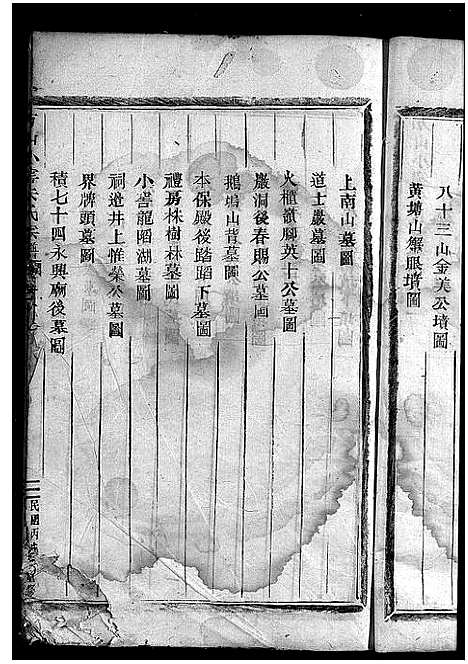 八十三山金美公墳圖
黃塘山蟹眼墳圖
上南山墓圖
道士巖墓圖
火櫃嶺脚英十公墓圖
巖洞後春賜公墓圖
鵝塢山背墓圖
本保殿後踏蹈下墓圖
禮房株樹林墓圖
小窖龍陷湖墓圖
祠邊井上惟榮公墓圖
界牌頭墓圖
積七十四永興廟後墓圖
民國丙